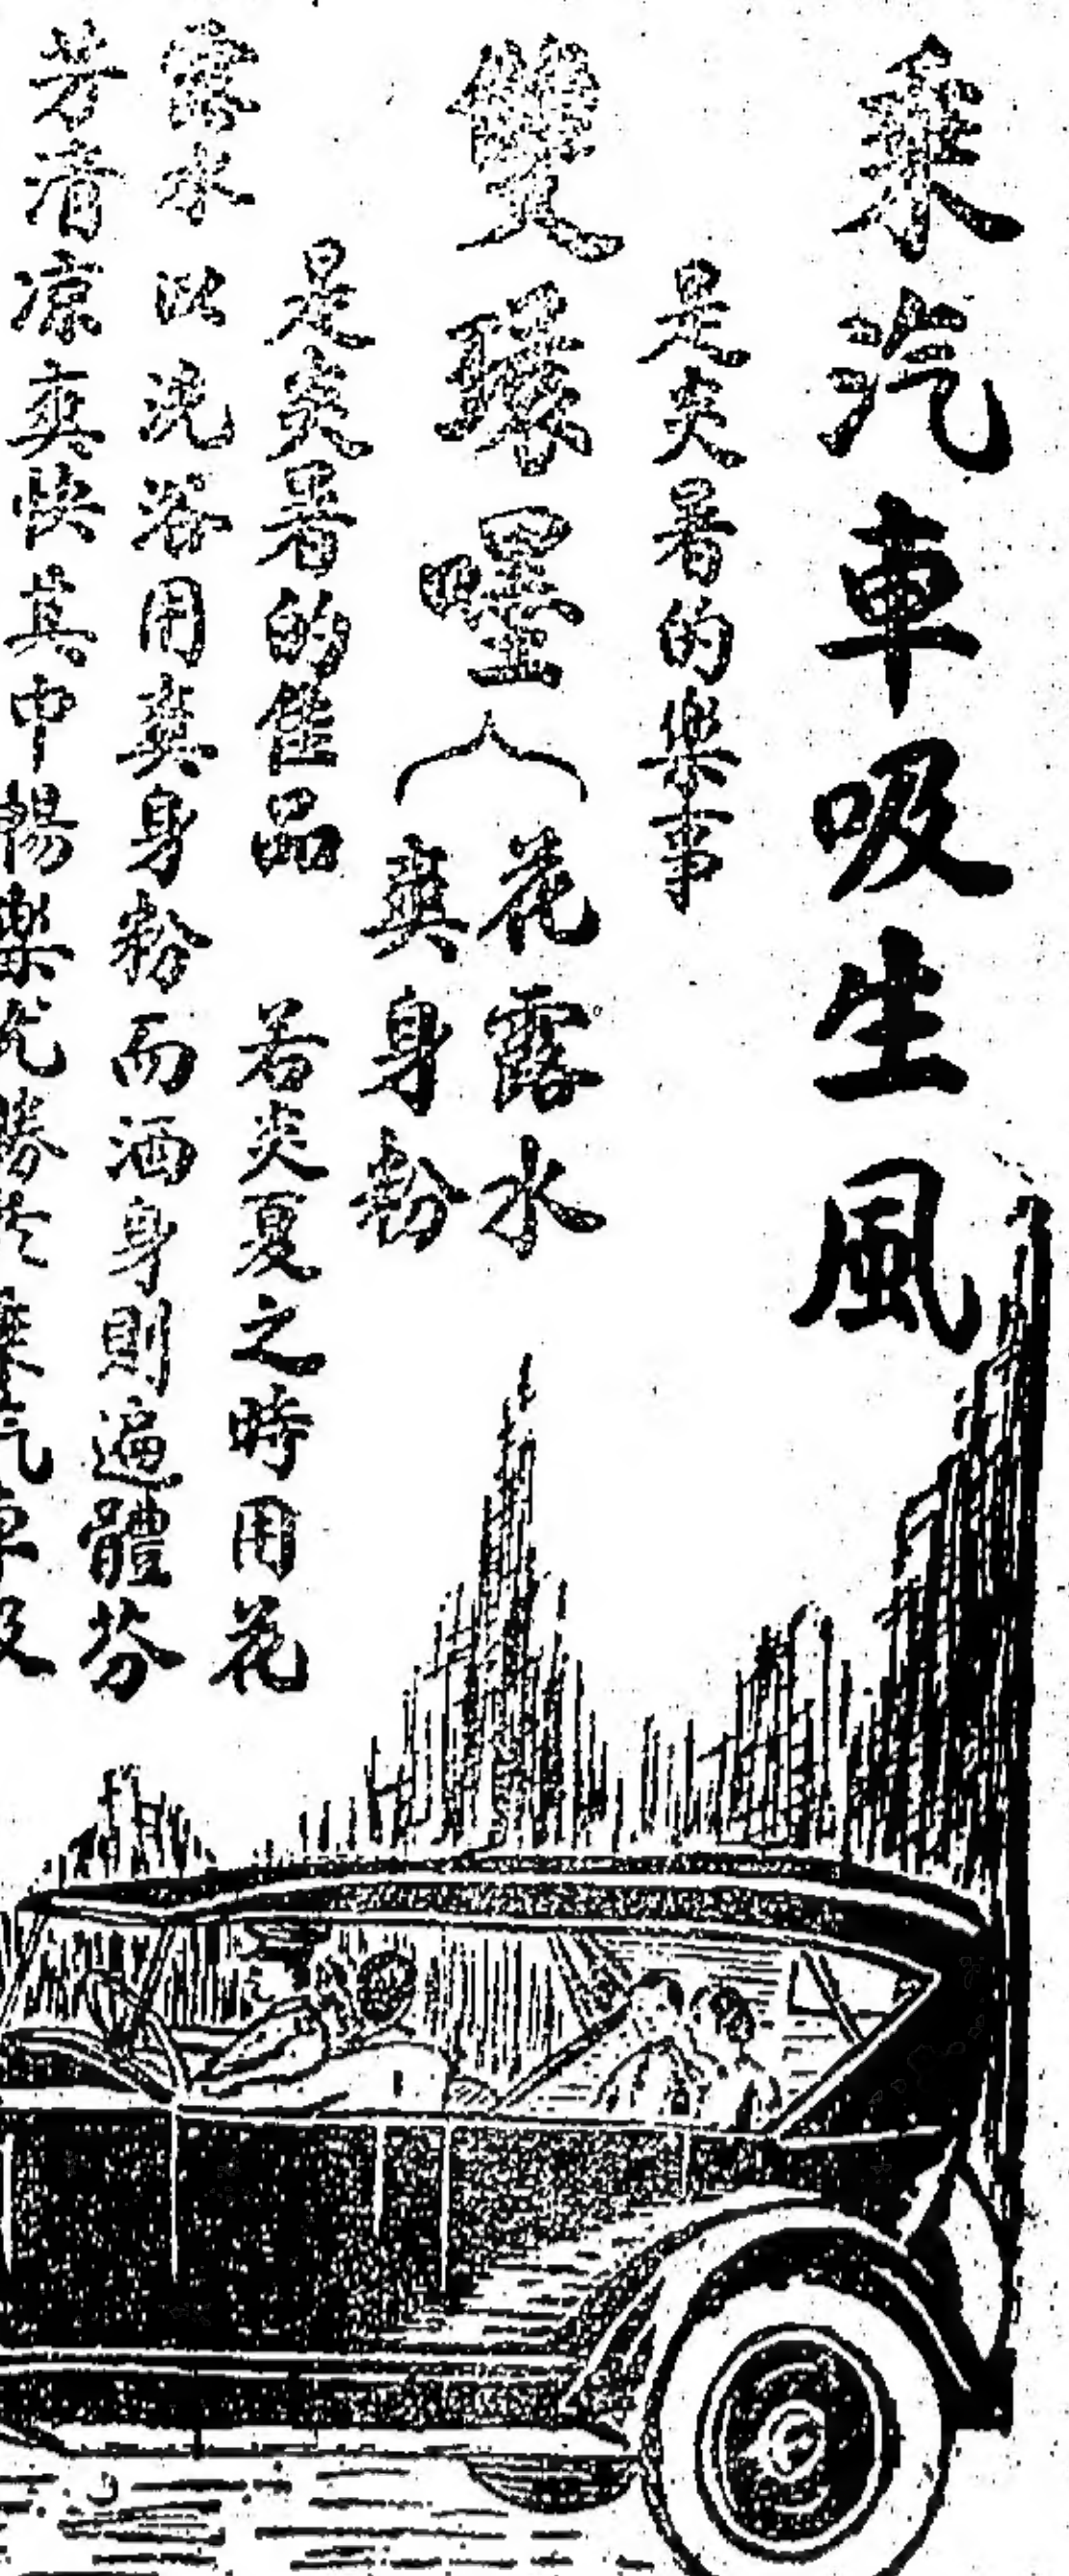 乘汽車吸生風
是炎暑的樂事
雙環嚜
花露水
爽身粉
是炎暑的佳品 若炎夏之時用花
露水以洗浴用爽身粉而洒身則遍體芬
芳清凉爽快其中暢樂尤勝於乘汽車吸